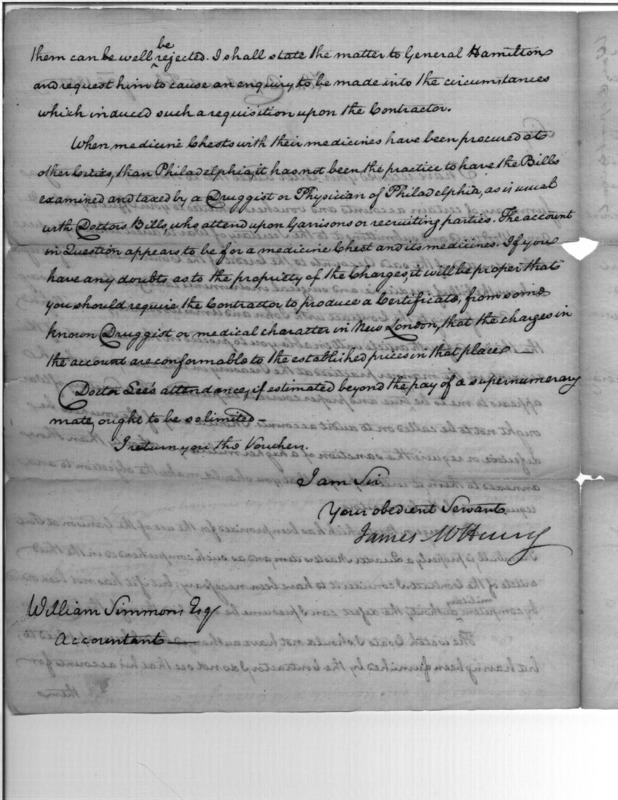 them can be well be rejected. I shall state the matter to General Hamilton
and request him to cause an enquiry to be made into the circumstances
which induced such a requisition upon the Contractor.
When medicine Chests with their medicines have been procured at
other Cities, than Philadelphia, it has not been the practice to have the Bills
examined and taxed by a Druggist or Physician of Philadelphia, as is usual
with Doctors Bills, who attend upon Garrisons or recruiting parties. The account
in Question appears to be for a medicine Chest and its medicines. If you
have any doubts as to the propriety of the Charges, it will be proper that
you should require the Contractor to produce a Certificate, from some
known Druggist or medical character in New London, that the charges in
the account are conformable to the established prices in that place —
Doctor Lee's attendance, if estimated beyond the pay of a supernumerary
mate, ought to be so limited —
I return you the Voucher.
I am Sir
Your obedient Servant
James McHenry
William Simmons Esq
Accountant —